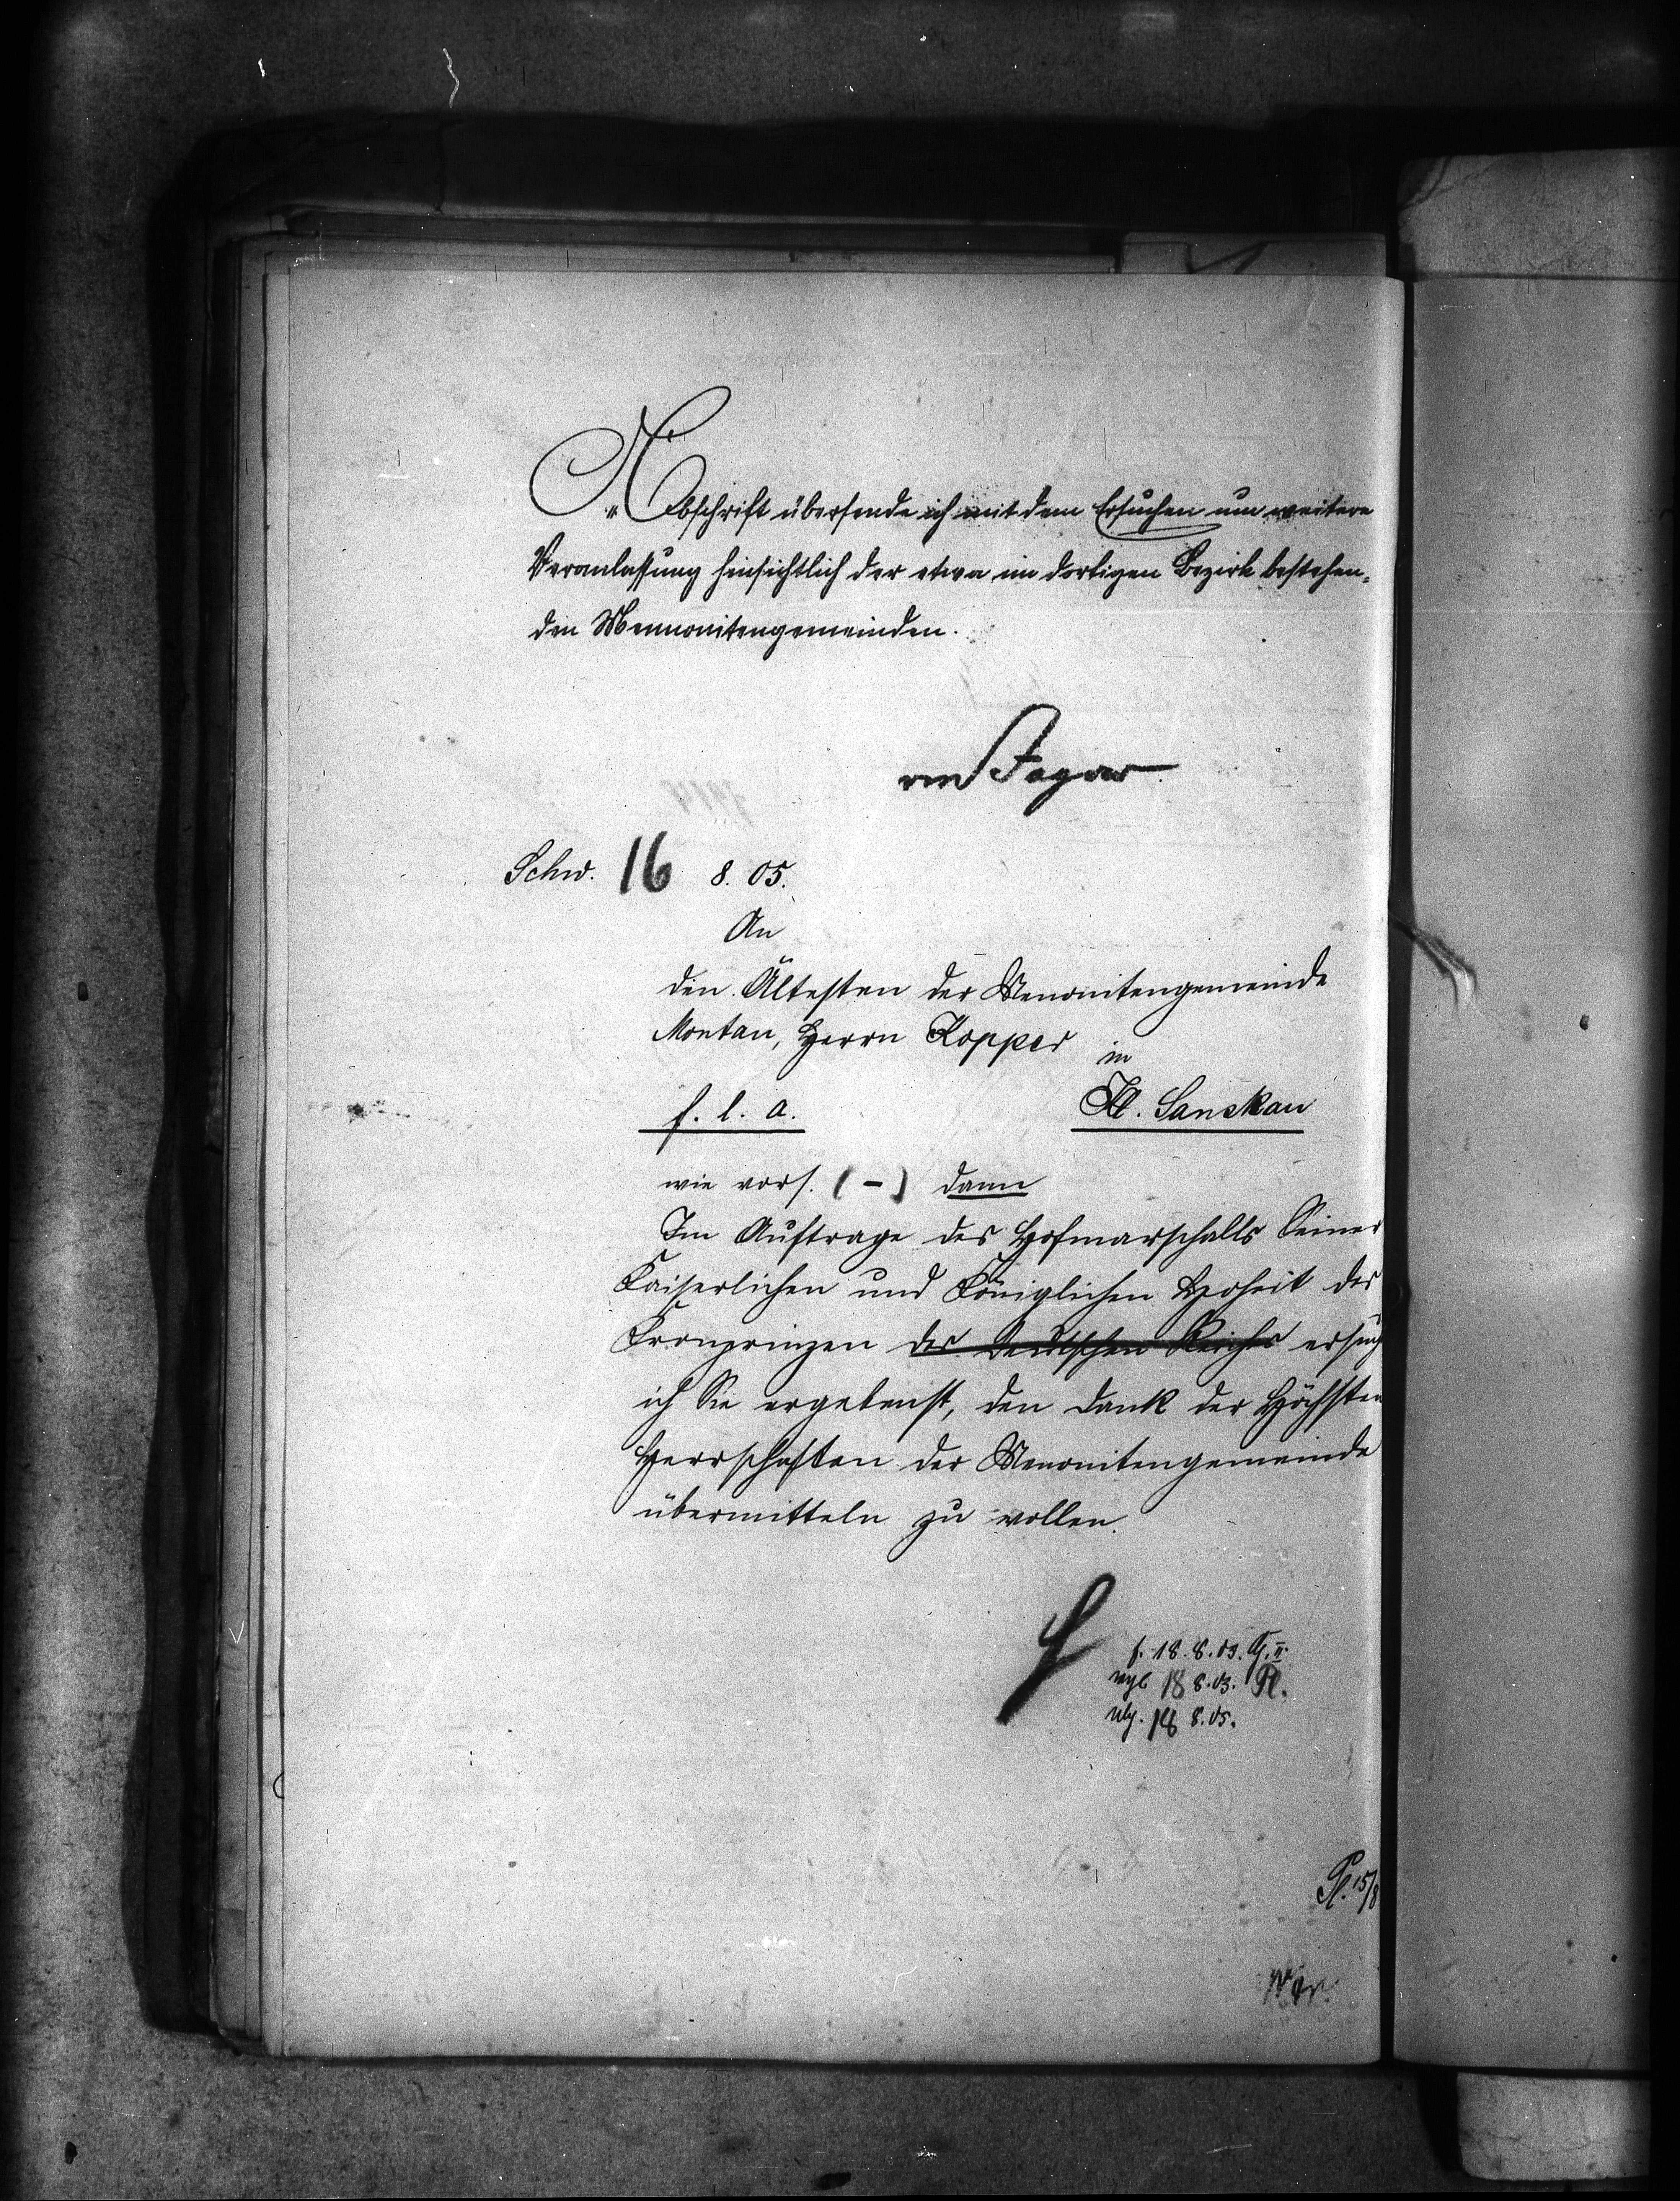 Abschrift übersende ich mit dem Ersuchen um weitere
Veranlassung hinsichtlich der etwa im dortigen Bezirk bestehen-
den Mennonitengemeinden.
von Jagow
Schw. 16 8. 05.
An
den Ältesten der Menonitengemeinde
Montau, Herrn Kopper
in
f. l. a. Kl. Sanskau
wie vors. (-) dann
Im Auftrage des Hofmarschalls Seiner
Kaiserlichen und Königlichen Hoheit des
Kronprinzen des Deutschen Reichs ersuche
ich Sie ergebenst, den Dank der Höchsten
Herrschaften der Menonitengemeinde
übermitteln zu wollen.
18. 8. 05.
18 8. 05. Pl.
18 8. 05.
Pl. 15/8